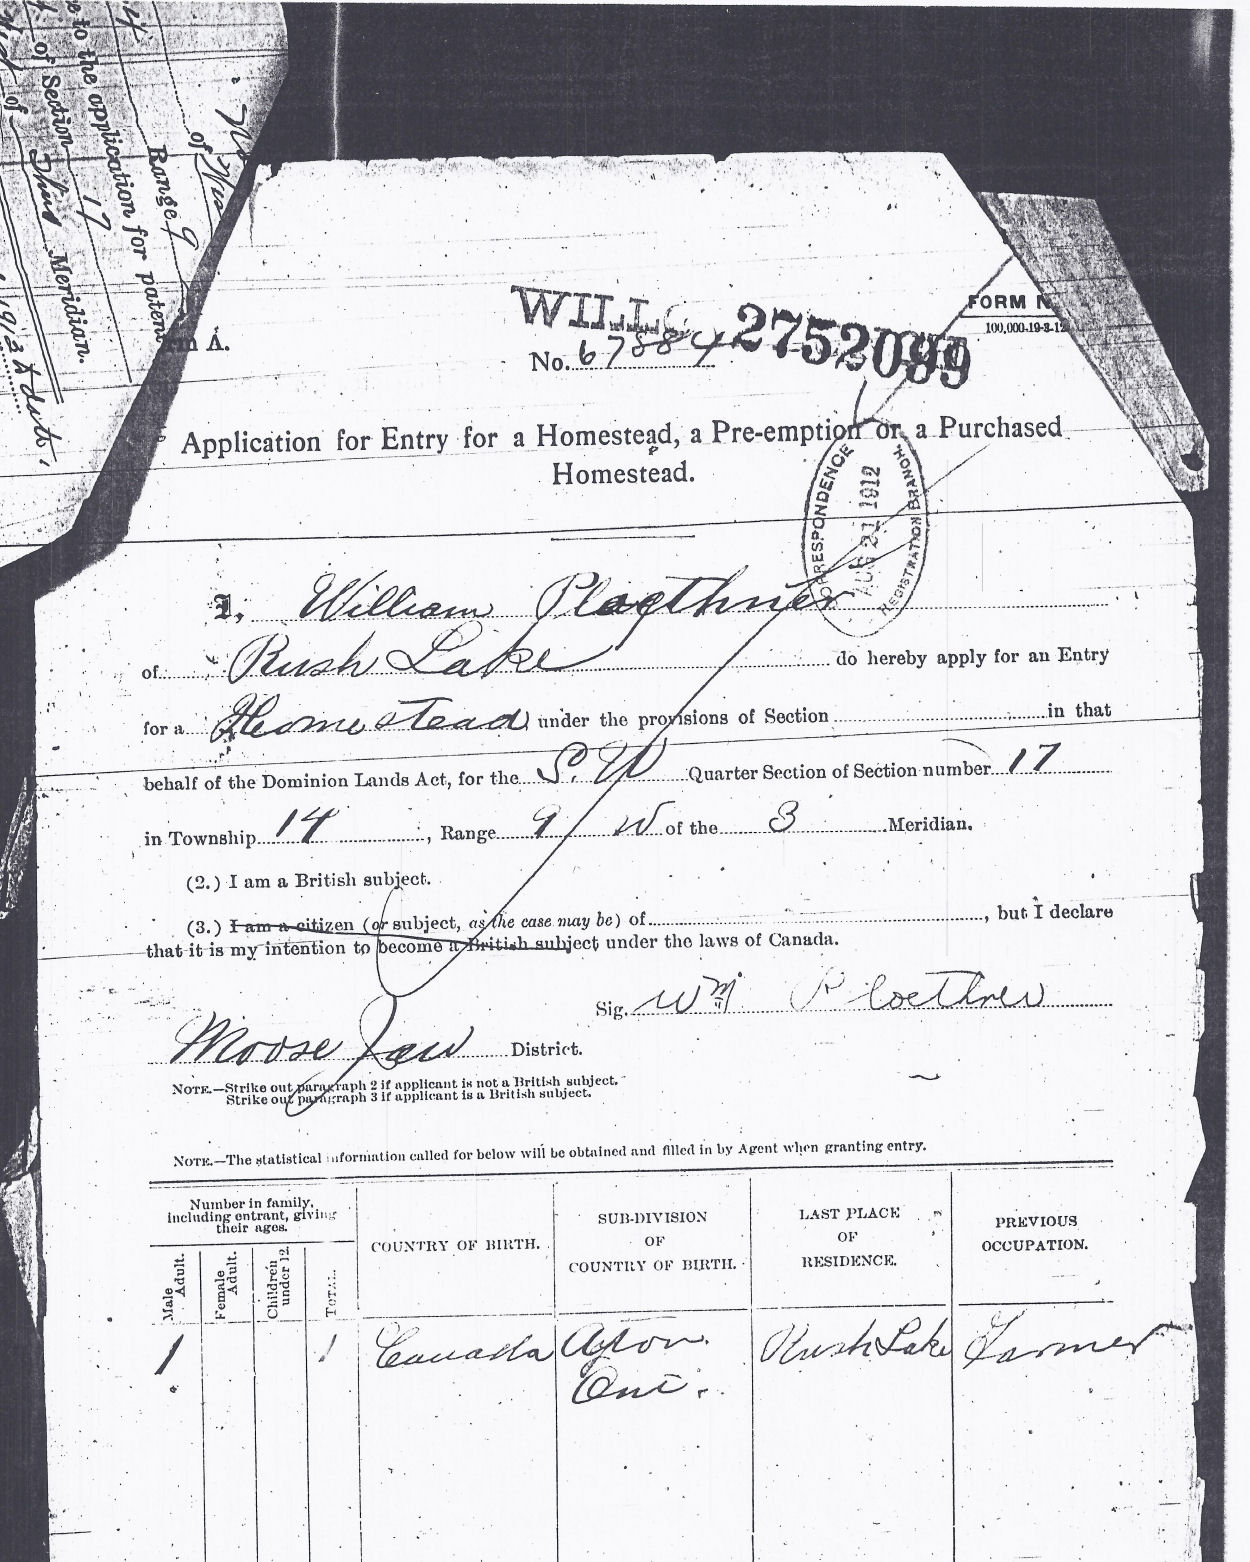 4
e to the application for patent
of Section 17
of Third Meridian.
Range 9
of
WILL
No. 67884 2752099
FORM N
100,000-19-3-12
m A.
Application for Entry for a Homestead, a Pre-emption or a Purchased
Homestead.
CORRESPONDENCE
AUG 21 1912
REGISTRATION BRANCH
I, William Ploethner
of Rush Lake do hereby apply for an Entry
for a Homestead under the provisions of Section in that
behalf of the Dominion Lands Act, for the S. W Quarter Section of Section number 17
in Township 14, Range 9 W of the 3 Meridian.
(2.) I am a British subject.
(3.) I am a citizen (or subject, as the case may be) of , but I declare
that it is my intention to become a British subject under the laws of Canada.
Sig. Wm Ploethner
Moose Jaw District.
NOTE.—Strike out paragraph 2 if applicant is not a British subject.
Strike out paragraph 3 if applicant is a British subject.
NOTE.—The statistical information called for below will be obtained and filled in by Agent when granting entry.
Number in family,
including entrant, giving
their ages.
Male Adult.
Female Adult.
Children under 12
TOTAL.
COUNTRY OF BIRTH.
SUB-DIVISION
OF
COUNTRY OF BIRTH.
LAST PLACE
OF
RESIDENCE.
PREVIOUS
OCCUPATION.
1 1 Canada Ayton Rush Lake Farmer
Ont.